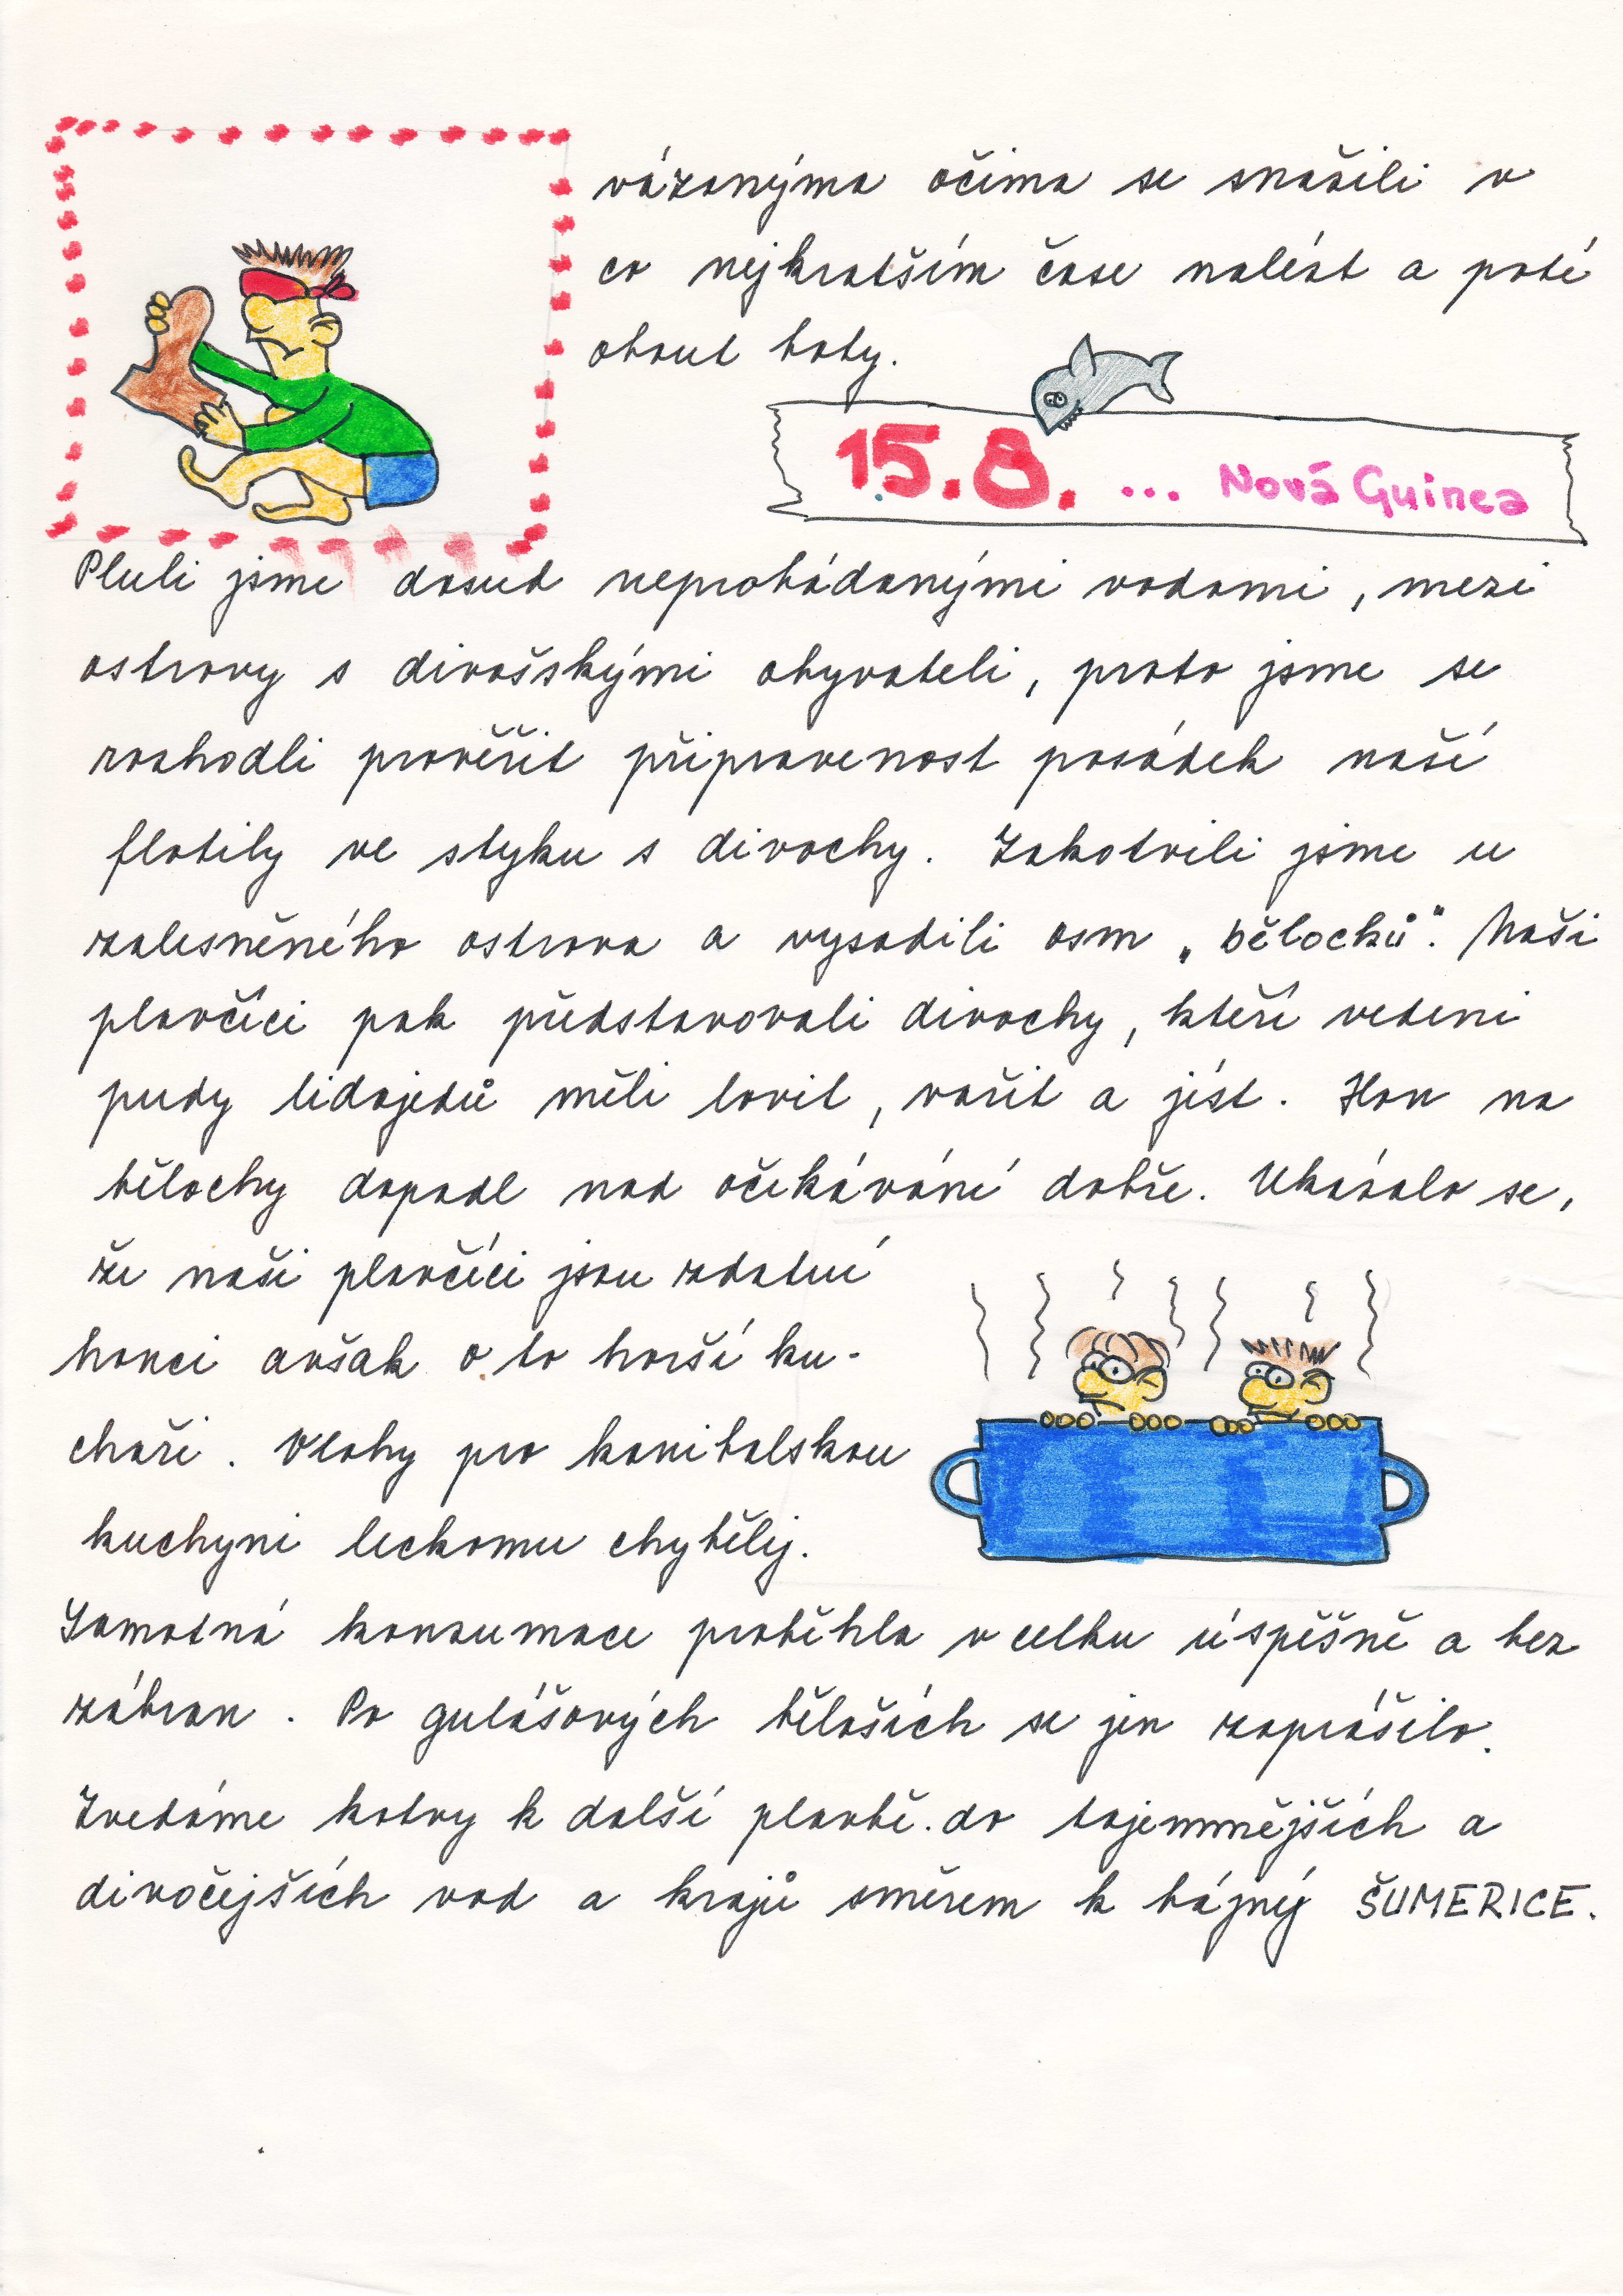 vázanýma očima se snažili v
co nejkratším čase nalézt a poté
obout boty.
15.8. ... Nová Guinea
Pluli jsme dosud neprobádanými vodami, mezi
ostrovy s divošskými obyvateli, proto jsme se
rozhodli prověřit připravenost posádek naší
flotily ve styku s divochy. Zakotvili jsme u
zalesněného ostrova a vysadili osm „bělochů". Naši
plavčíci pak představovali divochy, kteří vedeni
pudy lidojedů měli lovit, vařit a jíst. Hon na
bělochy dopadl nad očekávání dobře. Ukázalo se,
že naši plavčíci jsou zdatní
honci avšak o to horší ku-
chaři. Vlohy pro kanibalskou
kuchyni leckomu chyběly.
Samotná konzumace proběhla v celku úspěšně a bez
zábran. Po gulášových běloších se jen zaprášilo.
Zvedáme kotvy k další plavbě. do tajemnějších a
divočejších vod a krajů směrem k bájný ŠUMERICE.